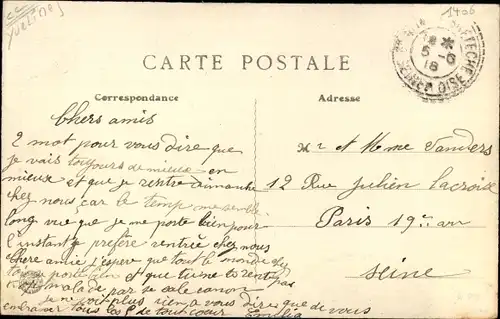 Yvelines
1406
5-6
18
SEINE-ET-OISE
CARTE POSTALE
Correspondance
Adresse
Chers amis
2 mot pour vous dire que
je vais toujours de mieux en
mieuse et que je rentre dimanche
chez nous car le temp me semble
long vue que je me porte bien pour
l'instant prefère rentrée chez nous
chere amie j'espere que tout le monde chez
porte bien et que tu ne te rent pas
malade par se sale canon
je ne voit plus rien a vous dire que de vous
embrasser tous de tout coeur Emilia
Mr et Mme Sanders
12 Rue Julien Lacroix
Paris 19e arr
Seine